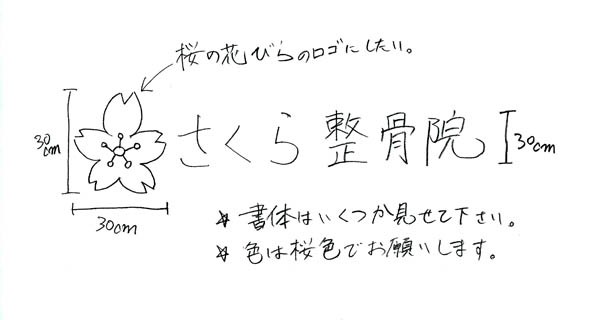 桜の花びらのロゴにしたい。
30cm
さくら整骨院
30cm
30cm
* 書体はいくつか見せて下さい。
* 色は桜色でお願いします。